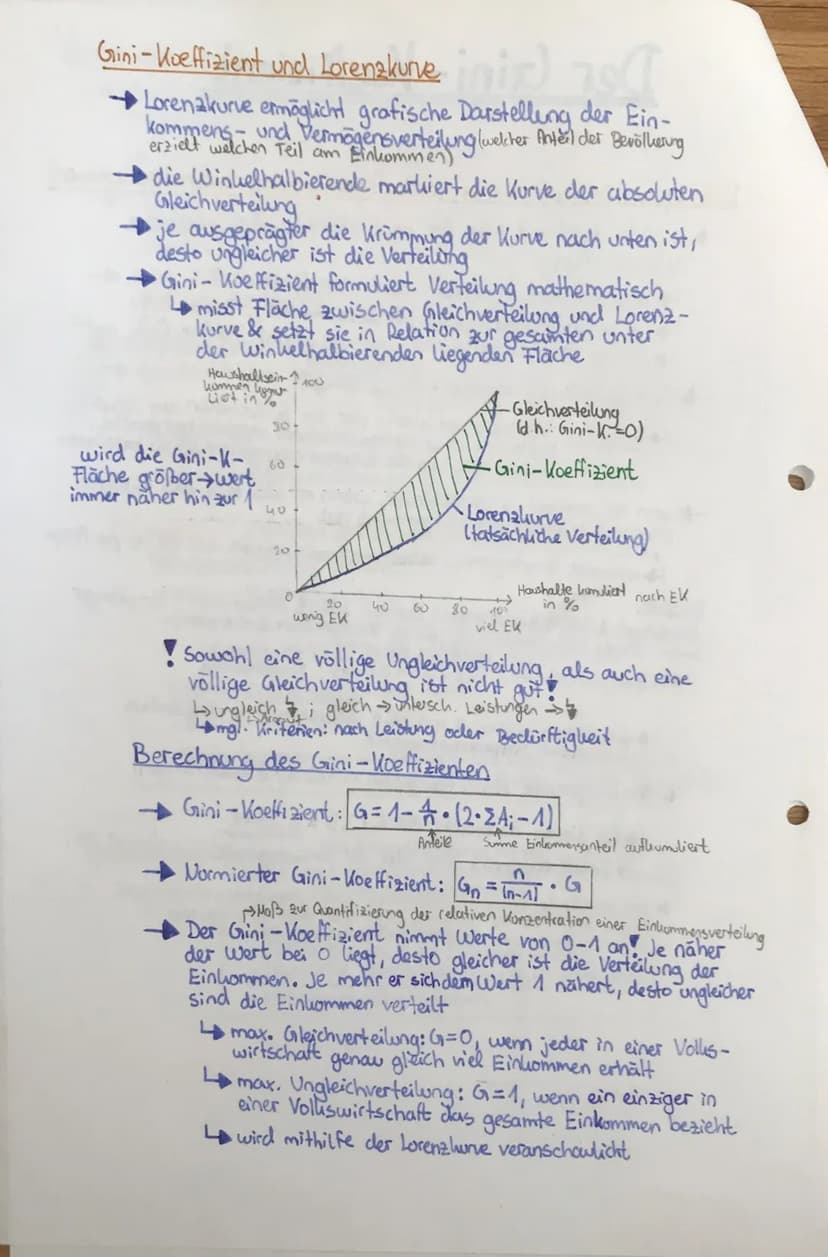 Gini-Koeffizient und Lorenzkurve
→ Lorenzkurve ermöglicht grafische Darstellung der Ein-
kommens- und Vermögensverteilung (welcher Anteil der Bevölkerung
erzielt welchen Teil am Einkommen)
→ die Winkelhalbierende markiert die Kurve der absoluten
Gleichverteilung
→ je ausgeprägter die Krümmung der Kurve nach unten ist,
desto ungleicher ist die Verteilung
→ Gini-Koeffizient formuliert Verteilung mathematisch
↳ misst Fläche zwischen Gleichverteilung und Lorenz-
kurve & setzt sie in Relation zur gesamten unter
der Winkelhalbierenden liegenden Fläche
Haushaltsein-
kommen kumu-
liert in %
100
80
60
40
20
0
wird die Gini-K-
Fläche größer → wert
immer näher hin zur 1
Gleichverteilung
(d.h.: Gini-K. = 0)
Gini-Koeffizient
Lorenzkurve
(tatsächliche Verteilung)
20 40 60 80 100
Haushalte kumuliert nach EK
in %
wenig EK
viel EK
! Sowohl eine völlige Ungleichverteilung, als auch eine
völlige Gleichverteilung ist nicht gut!
↳ ungleich ↯; gleich → untersch. Leistungen → ↯
↳ mgl. Kriterien: nach Leistung oder Bedürftigkeit
Berechnung des Gini-Koeffizienten
→ Gini-Koeffizient: G = 1 - 1/n • (2 • ΣAi - 1)
Anteile Summe Einkommensanteil aufkumuliert
→ Normierter Gini-Koeffizient: Gn = n/(n-1) • G
↳ Maß zur Quantifizierung der relativen Konzentration einer Einkommensverteilung
→ Der Gini-Koeffizient nimmt Werte von 0-1 an! Je näher
der Wert bei 0 liegt, desto gleicher ist die Verteilung der
Einkommen. Je mehr er sich dem Wert 1 nähert, desto ungleicher
sind die Einkommen verteilt
↳ max. Gleichverteilung: G=0, wenn jeder in einer Volks-
wirtschaft genau gleich viel Einkommen erhält
↳ max. Ungleichverteilung: G=1, wenn ein einziger in
einer Volkswirtschaft das gesamte Einkommen bezieht
↳ wird mithilfe der Lorenzkurve veranschaulicht